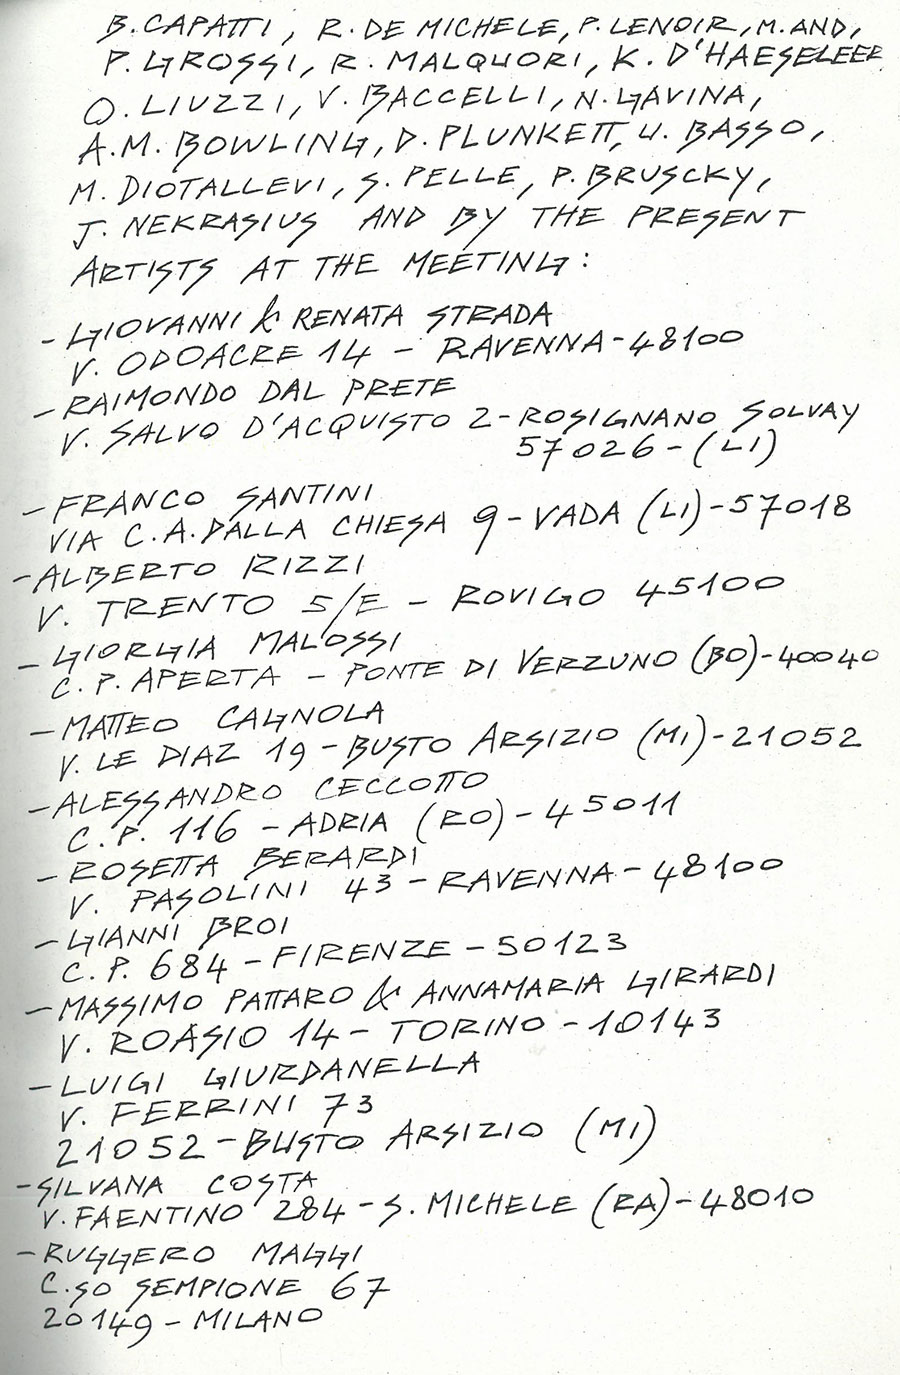 B. CAPATTI, R. DE MICHELE, P. LENOIR, M. AND,
P. GROSSI, R. MALQUORI, K. D'HAESELEER
O. LIUZZI, V. BACCELLI, N. GAVINA,
A.M. BOWLING, D. PLUNKETT, U. BASSO,
M. DIOTALLEVI, S. PELLE, P. BRUSCKY,
J. NEKRASIUS AND BY THE PRESENT
ARTISTS AT THE MEETING:
- GIOVANNI & RENATA STRADA
V. ODOACRE 14 - RAVENNA - 48100
- RAIMONDO DAL PRETE
V. SALVO D'ACQUISTO 2 - ROSIGNANO SOLVAY
57026 - (LI)
- FRANCO SANTINI
VIA C.A. DALLA CHIESA 9 - VADA (LI) - 57018
- ALBERTO RIZZI
V. TRENTO 5/E - ROVIGO 45100
- GIORGIA MALOSSI
C.P. APERTA - PONTE DI VERZUNO (BO) - 40040
- MATTEO CAGNOLA
V. LE DIAZ 19 - BUSTO ARSIZIO (MI) - 21052
- ALESSANDRO CECCOTTO
C.P. 116 - ADRIA (RO) - 45011
- ROSETTA BERARDI
V. PASOLINI 43 - RAVENNA - 48100
- GIANNI BROI
C.P. 684 - FIRENZE - 50123
- MASSIMO PATTARO & ANNAMARIA GIRARDI
V. ROASIO 14 - TORINO - 10143
- LUIGI GIURDANELLA
V. FERRINI 73
21052 - BUSTO ARSIZIO (MI)
- SILVANA COSTA
V. FAENTINO 284 - S. MICHELE (RA) - 48010
- RUGGERO MAGGI
C.SO SEMPIONE 67
20149 - MILANO